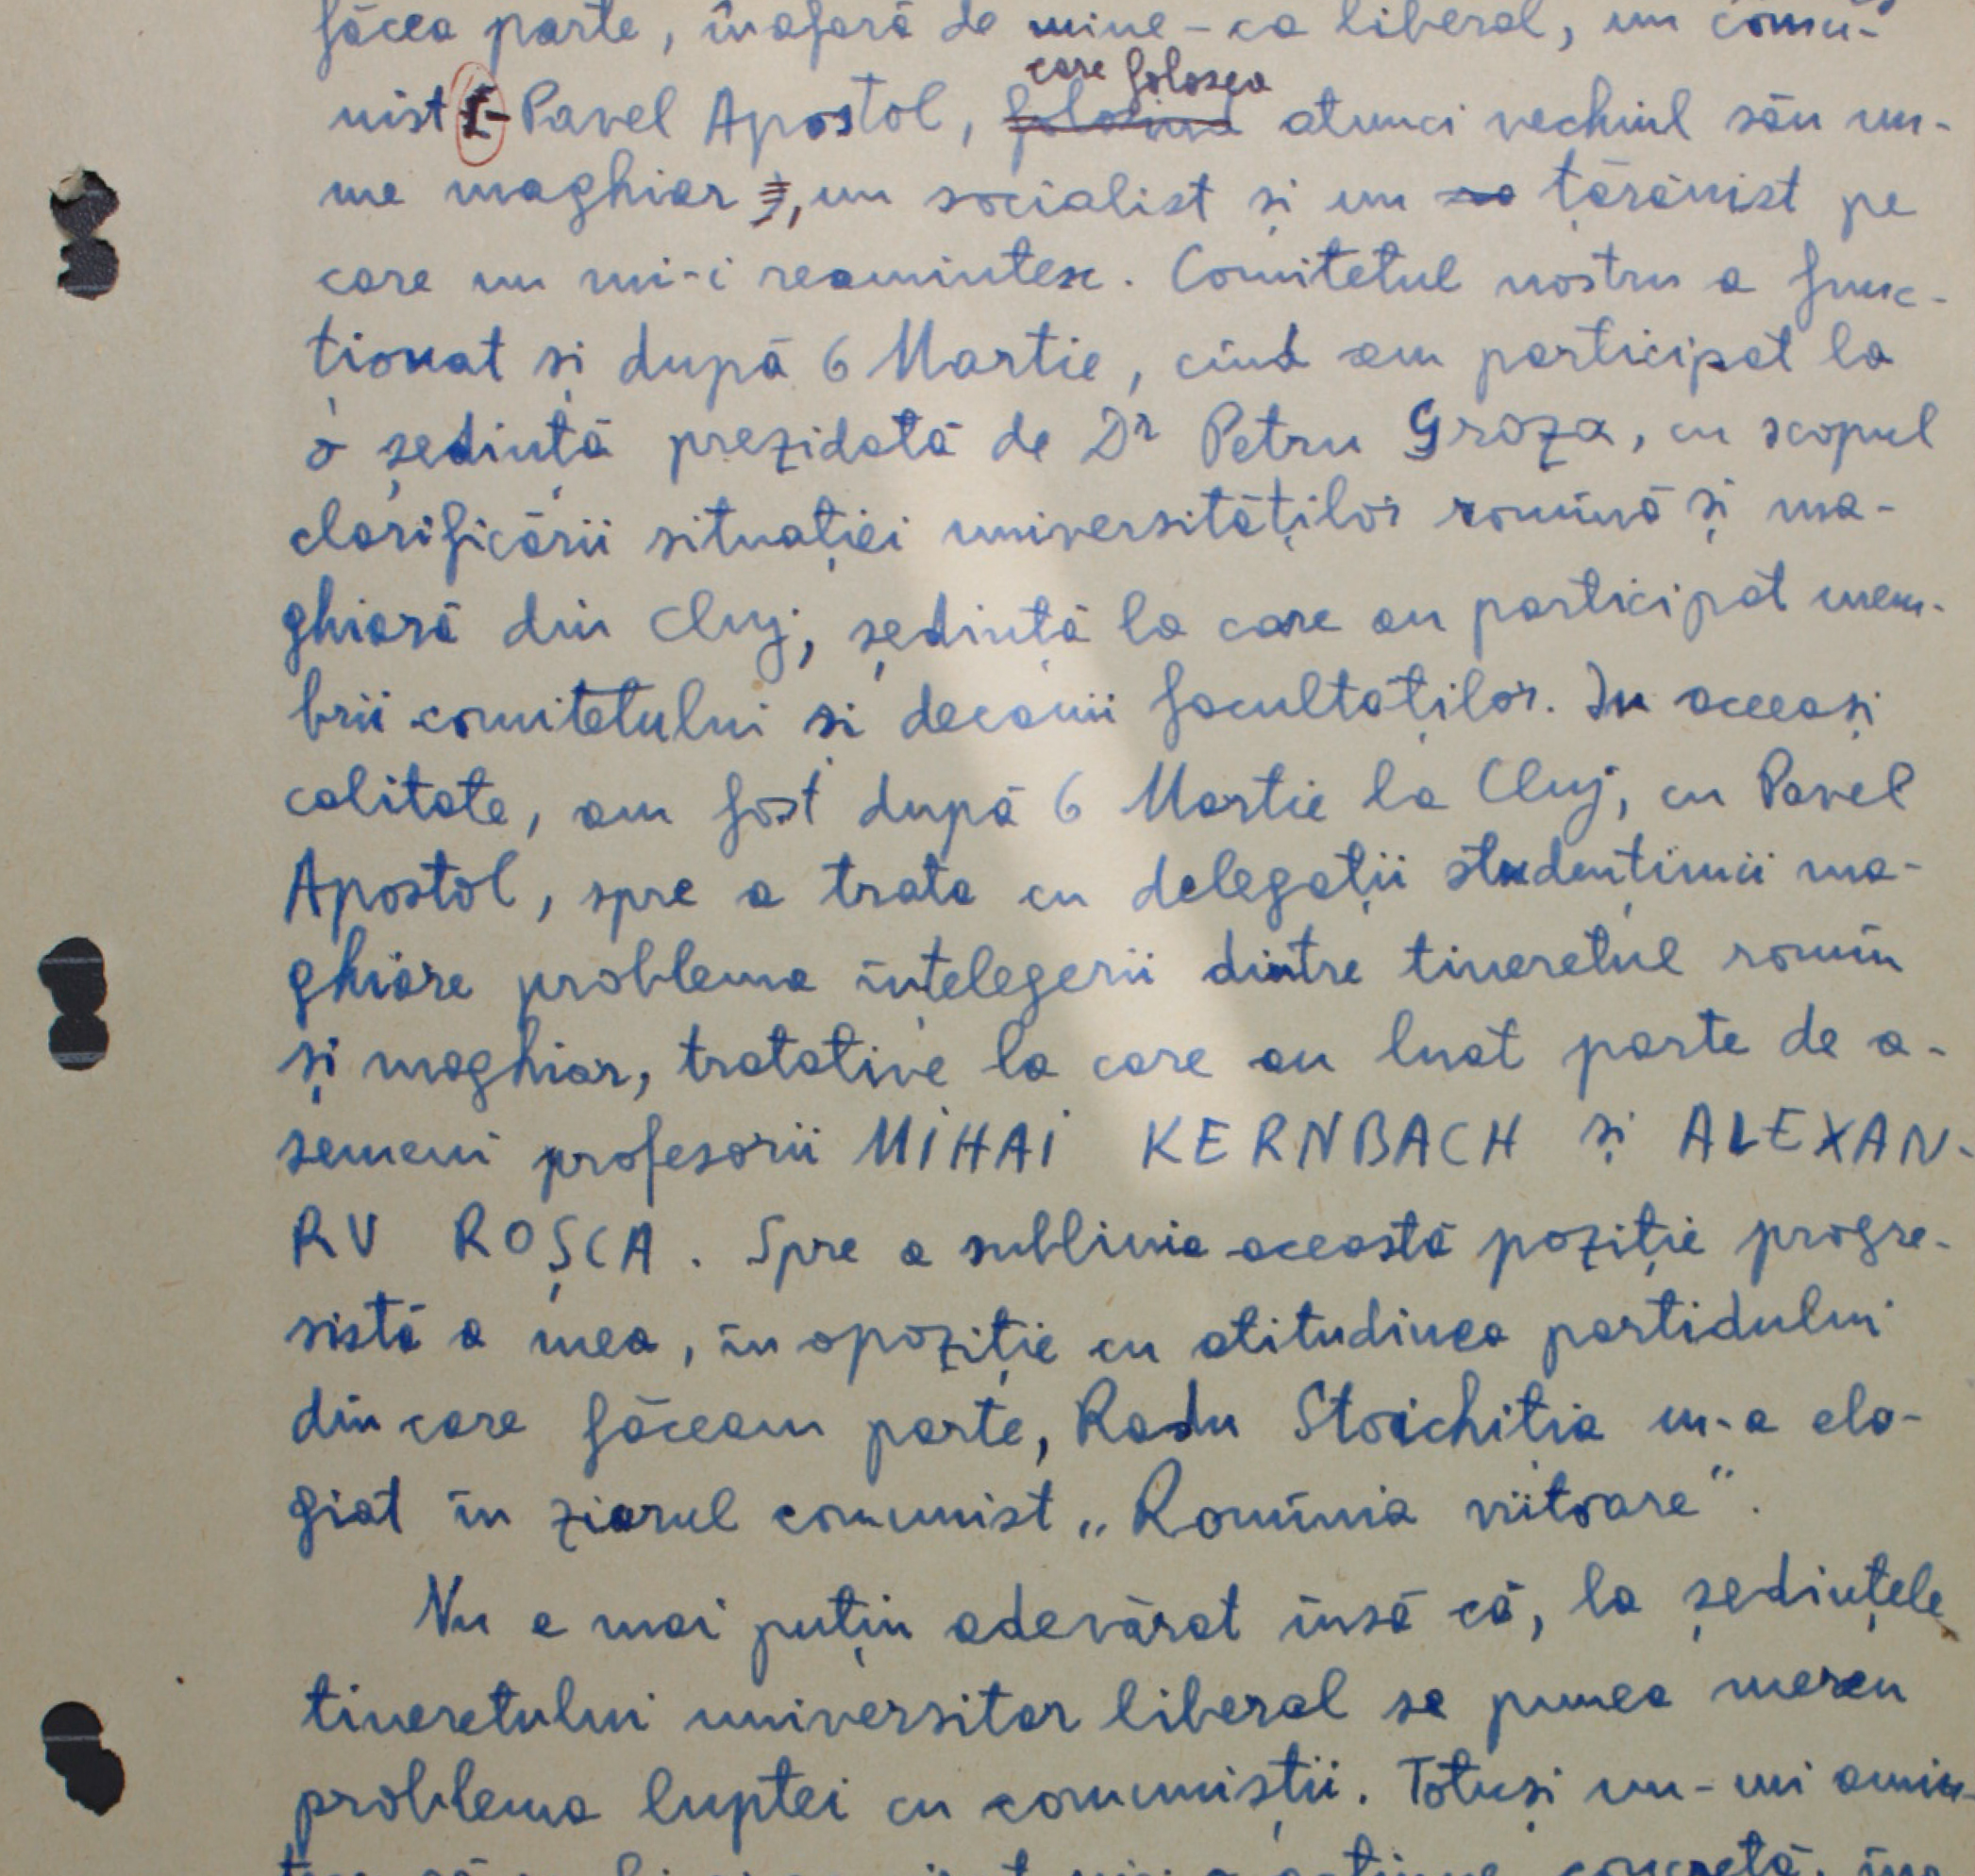 făcea parte, înafară de mine - ca liberal, un comu-
nist - Pavel Apostol, care folosea atunci vechiul său nu-
me maghiar, un socialist și un țărănist pe
care nu mi-i reamintesc. Comitetul nostru a func-
ționat și după 6 Martie, cînd am participat la
o ședință prezidată de Dr Petru Groza, cu scopul
clarificării situației universităților romînă și ma-
ghiară din Cluj, ședință la care au participat mem-
brii comitetului și decanii facultăților. In aceeași
calitate, am fost după 6 Martie la Cluj, cu Pavel
Apostol, spre a trata cu delegații studențimii ma-
ghiare problema înțelegerii dintre tineretul romîn
și maghiar, tratative la care au luat parte de a-
semeni profesorii MIHAI KERNBACH și ALEXAN-
RU ROȘCA. Spre a sublinia această poziție progre-
sistă a mea, în opoziție cu atitudinea partidului
din care făceam parte, Radu Stoichiția m-a elo-
giat în ziarul comunist „Romînia viitoare".
Nu e mai puțin adevărat însă că, la ședințele
tineretului universitar liberal se punea mereu
problema luptei cu comuniștii. Totuși nu-mi amin-
concretă,